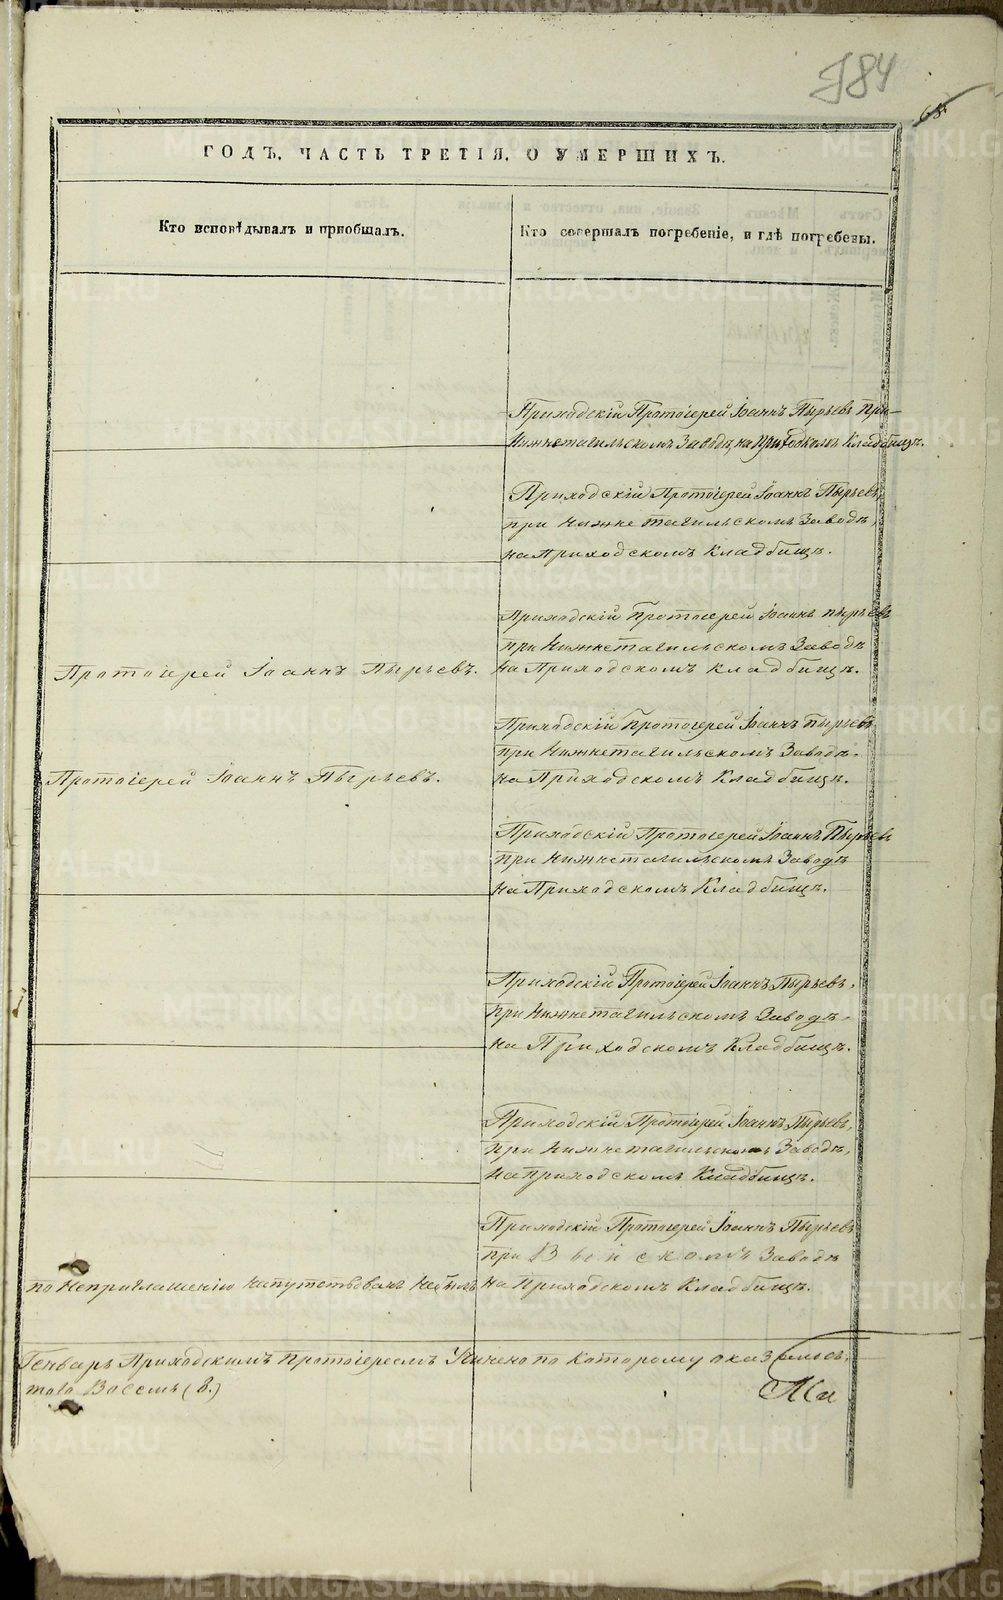 784
68
ГОДЪ, ЧАСТЬ ТРЕТІЯ, О УМЕРШИХЪ.
Кто исповѣдывалъ и пріобщалъ.
Кто совершалъ погребеніе, и гдѣ погребены.
Приходскій Протоіерей Іоаннъ Пырьевъ при
Нижнетагильскомъ Заводѣ, на Приходскомъ Кладбищѣ.
Приходскій Протоіерей Іоаннъ Пырьевъ,
при Нижнетагильскомъ Заводѣ,
на Приходскомъ Кладбищѣ.
Приходскій Протоіерей Іоаннъ Пырьевъ
при Нижнетагильскомъ Заводѣ
Протоіерей Іоаннъ Пырьевъ.
на Приходскомъ Кладбищѣ.
Приходскій Протоіерей Іоаннъ Пырьевъ
при Нижнетагильскомъ Заводѣ.
Протоіерей Іоаннъ Пырьевъ.
на Приходскомъ Кладбищѣ.
Приходскій Протоіерей Іоаннъ Пырьевъ
при Нижнетагильскомъ Заводѣ
на Приходскомъ Кладбищѣ.
Приходскій Протоіерей Іоаннъ Пырьевъ,
при Нижнетагильскомъ Заводѣ.
на Приходскомъ Кладбищѣ.
Приходскій Протоіерей Іоаннъ Пырьевъ,
при Нижнетагильскомъ Заводѣ,
на Приходскомъ Кладбищѣ.
Приходскій Протоіерей Іоаннъ Пырьевъ
при Выйскомъ Заводѣ
по Неприглашенію напутствованъ небылъ
на Приходскомъ Кладбищѣ.
Генварь Приходскимъ Протоіереемъ Учинено по которому оказалось,
того Восемь (8.)
METRIKI.GASO-URAL.RU